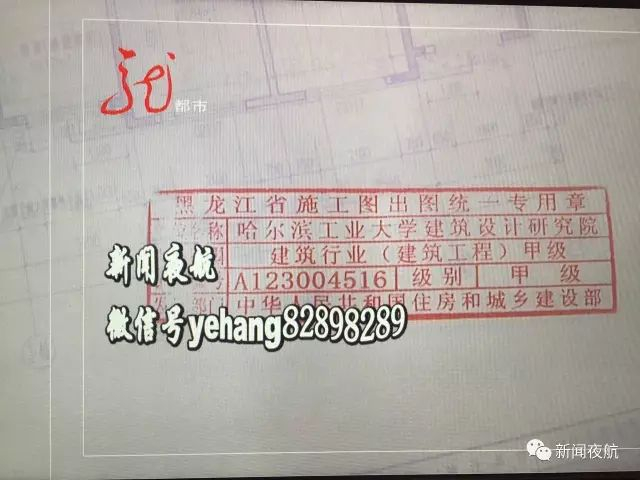 都市
黑龙江省施工图出图统一专用章
称 哈尔滨工业大学建筑设计研究院
建筑行业（建筑工程）甲级
号 A123004516 级别 甲级
部门 中华人民共和国住房和城乡建设部
新闻夜航
微信号yehang82898289
新闻夜航